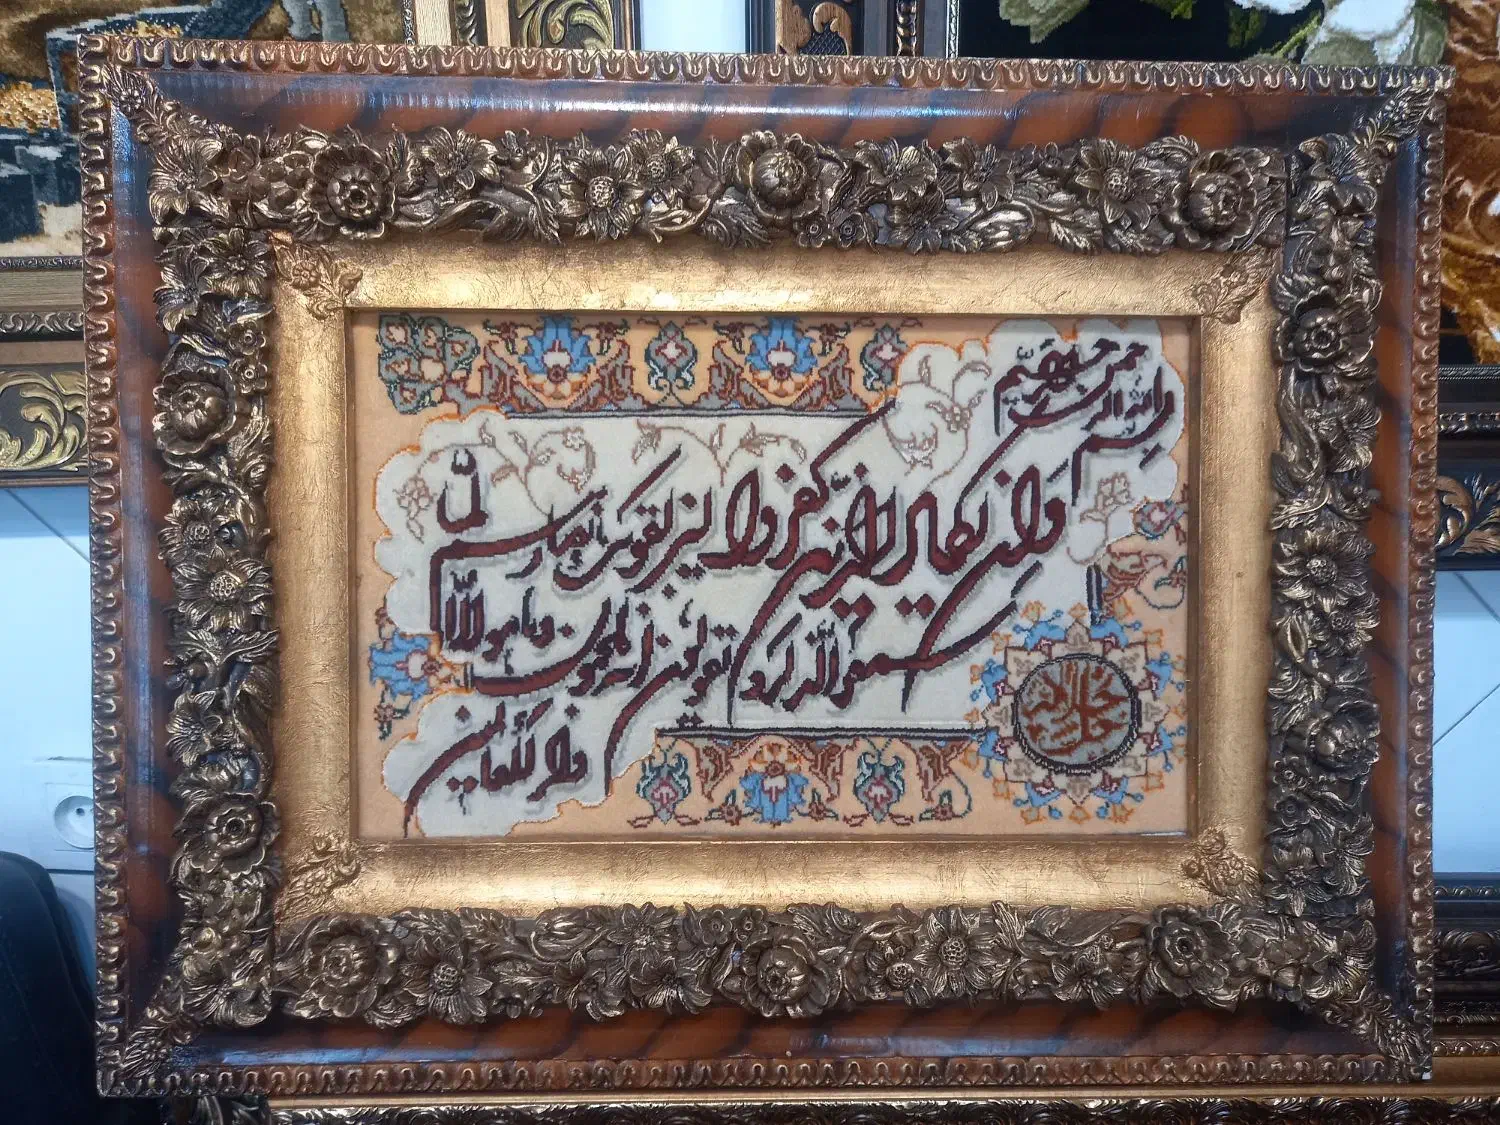 بسم الله الرحمن الرحیم
وان یکاد الذین کفروا لیزلقونک بابصارهم لما
سمعوا الذکر و یقولون انه لمجنون وما هو الا
ذکر للعالمین